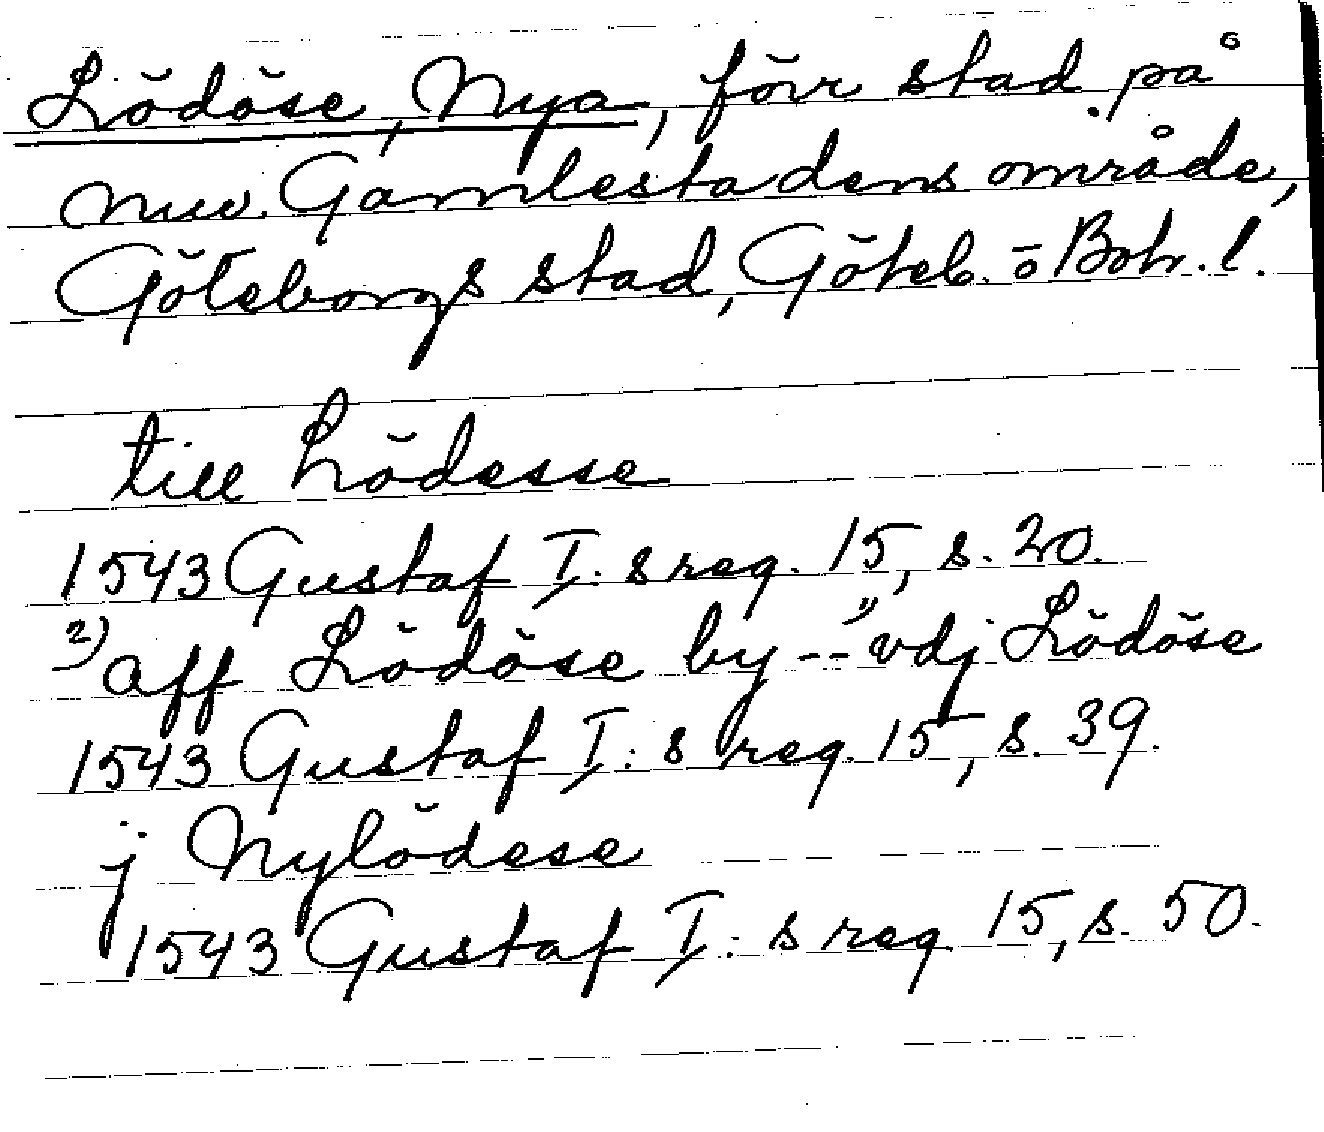 Lödöse, Nya, förr stad på
nuv. Gamlestadens område,
Göteborgs stad, Göteb. o Boh. l.
till Lödesse
1543 Gustaf I:s reg. 15, s. 20.
2) aff Lödöse by -- " vdj Lödöse
1543 Gustaf I:s reg. 15, s. 39.
j Nylödese
1543 Gustaf I:s reg. 15, s. 50.